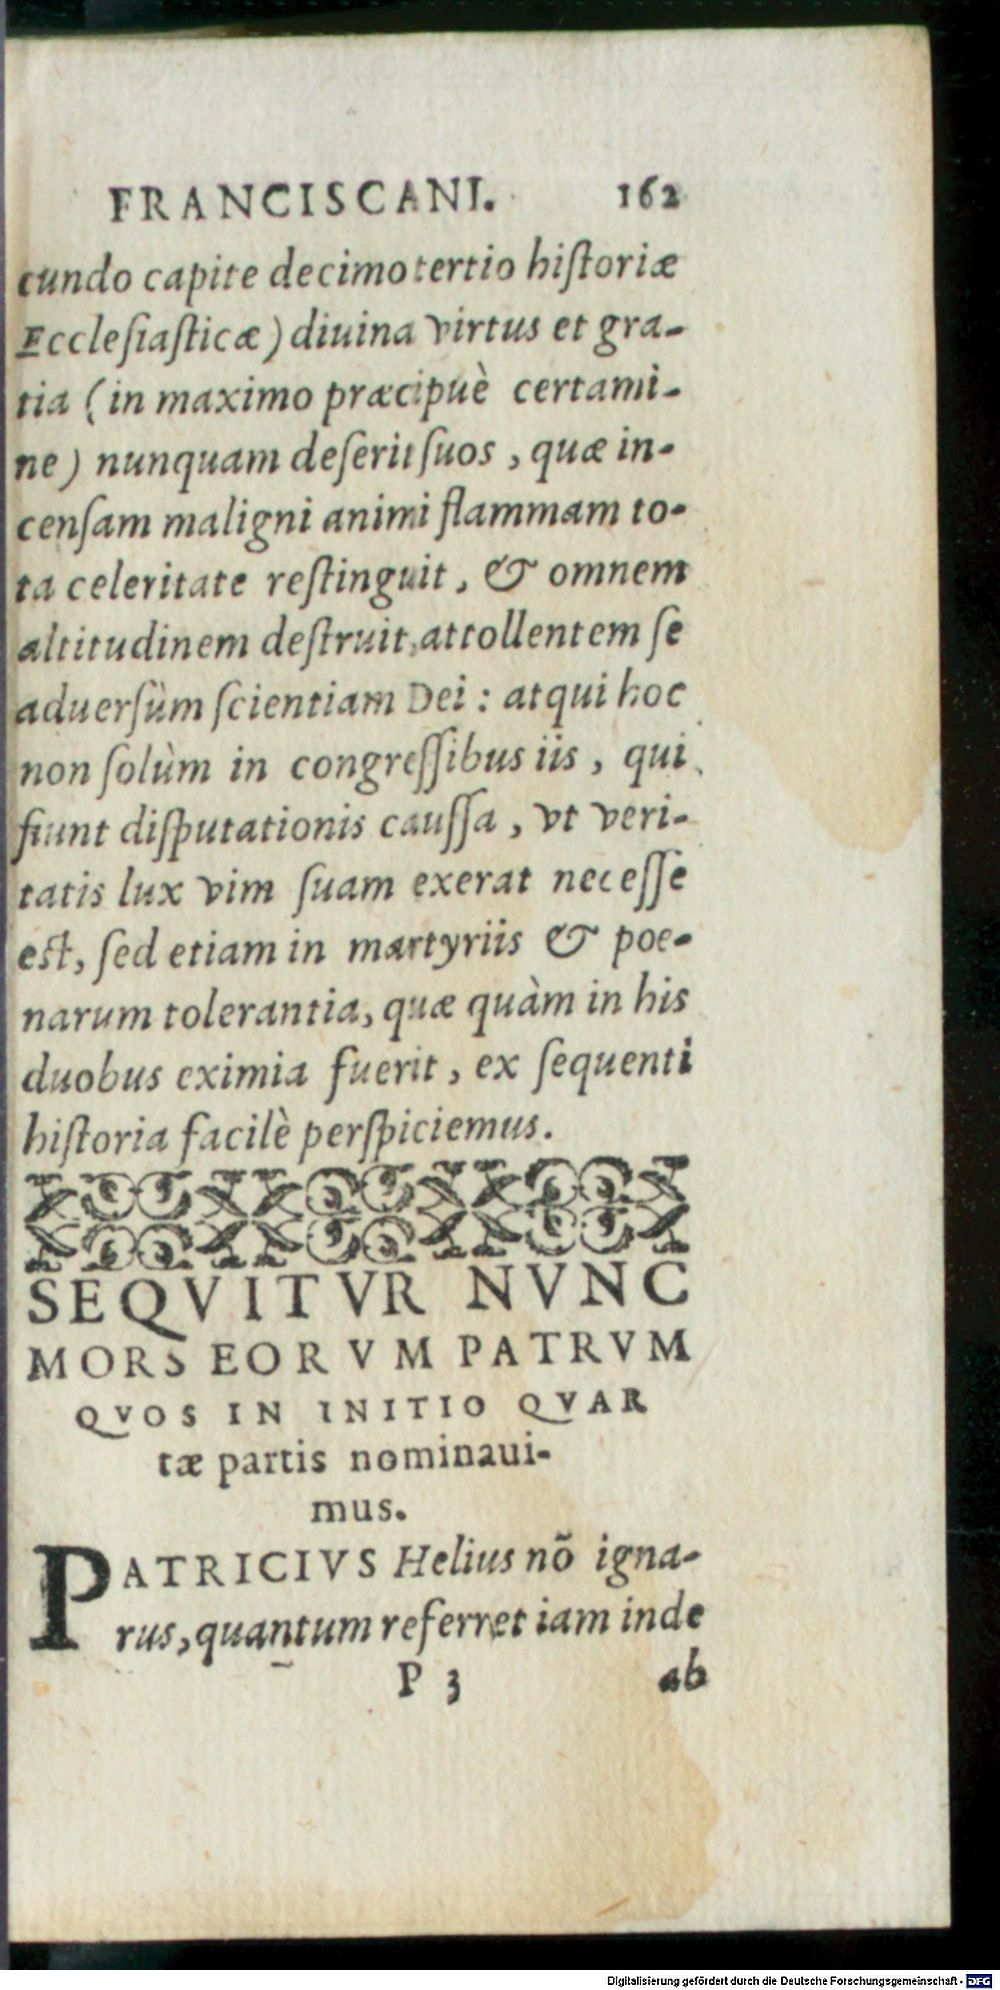 FRANCISCANI. 162
cundo capite decimotertio hiſtoriæ
Eccleſiaſticæ) diuina virtus et gra-
tia (in maximo præcipuè certami-
ne) nunquam deſerit ſuos, quæ in-
cenſam maligni animi flammam to-
ta celeritate reſtinguit, & omnem
altitudinem deſtruit, attollentem ſe
aduerſùm ſcientiam Dei: atqui hoc
non ſolùm in congreſſibus iis, qui
fiunt diſputationis cauſſa, vt veri-
tatis lux vim ſuam exerat neceſſe
eſt, ſed etiam in martyriis & poe-
narum tolerantia, quæ quàm in his
duobus eximia fuerit, ex ſequenti
hiſtoria facilè perſpiciemus.
SEQVITVR NVNC
MORS EORVM PATRVM
QVOS IN INITIO QVAR
tæ partis nominaui-
mus.
PATRICIVS Helius nõ igna-
rus, quantum referret iam inde
P 3 ab
Digitalisierung gefördert durch die Deutsche Forschungsgemeinschaft - DFG